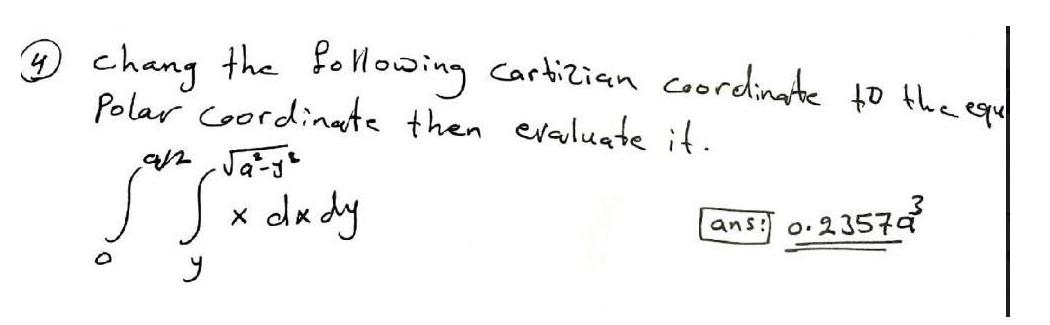 ④ chang the following cartizian coordinate to the equ
Polar coordinate then evaluate it.
∫₀^{a/2} ∫_y^{√(a²-y²)} x dx dy
ans: 0.2357a³